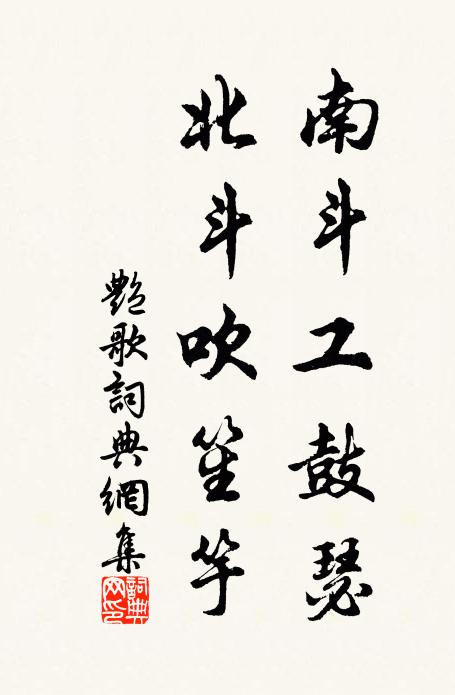 南斗工鼓瑟
北斗吹笙竽
艷歌詞典網集
詞典网印